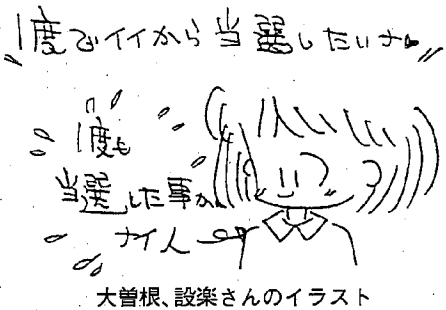 1度でイイから当選したいナ
1度も
当選した事が
ナイ人
大曽根、設楽さんのイラスト